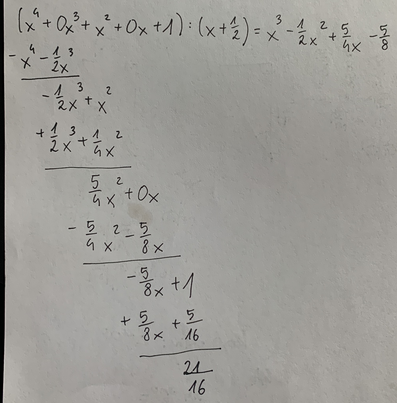 (x⁴ + 0x³ + x² + 0x + 1) : (x + 1/2) = x³ - 1/2x² + 5/4x - 5/8
- x⁴ - 1/2x³
- 1/2x³ + x²
+ 1/2x³ + 1/4x²
5/4x² + 0x
- 5/4x² - 5/8x
- 5/8x + 1
+ 5/8x + 5/16
21/16